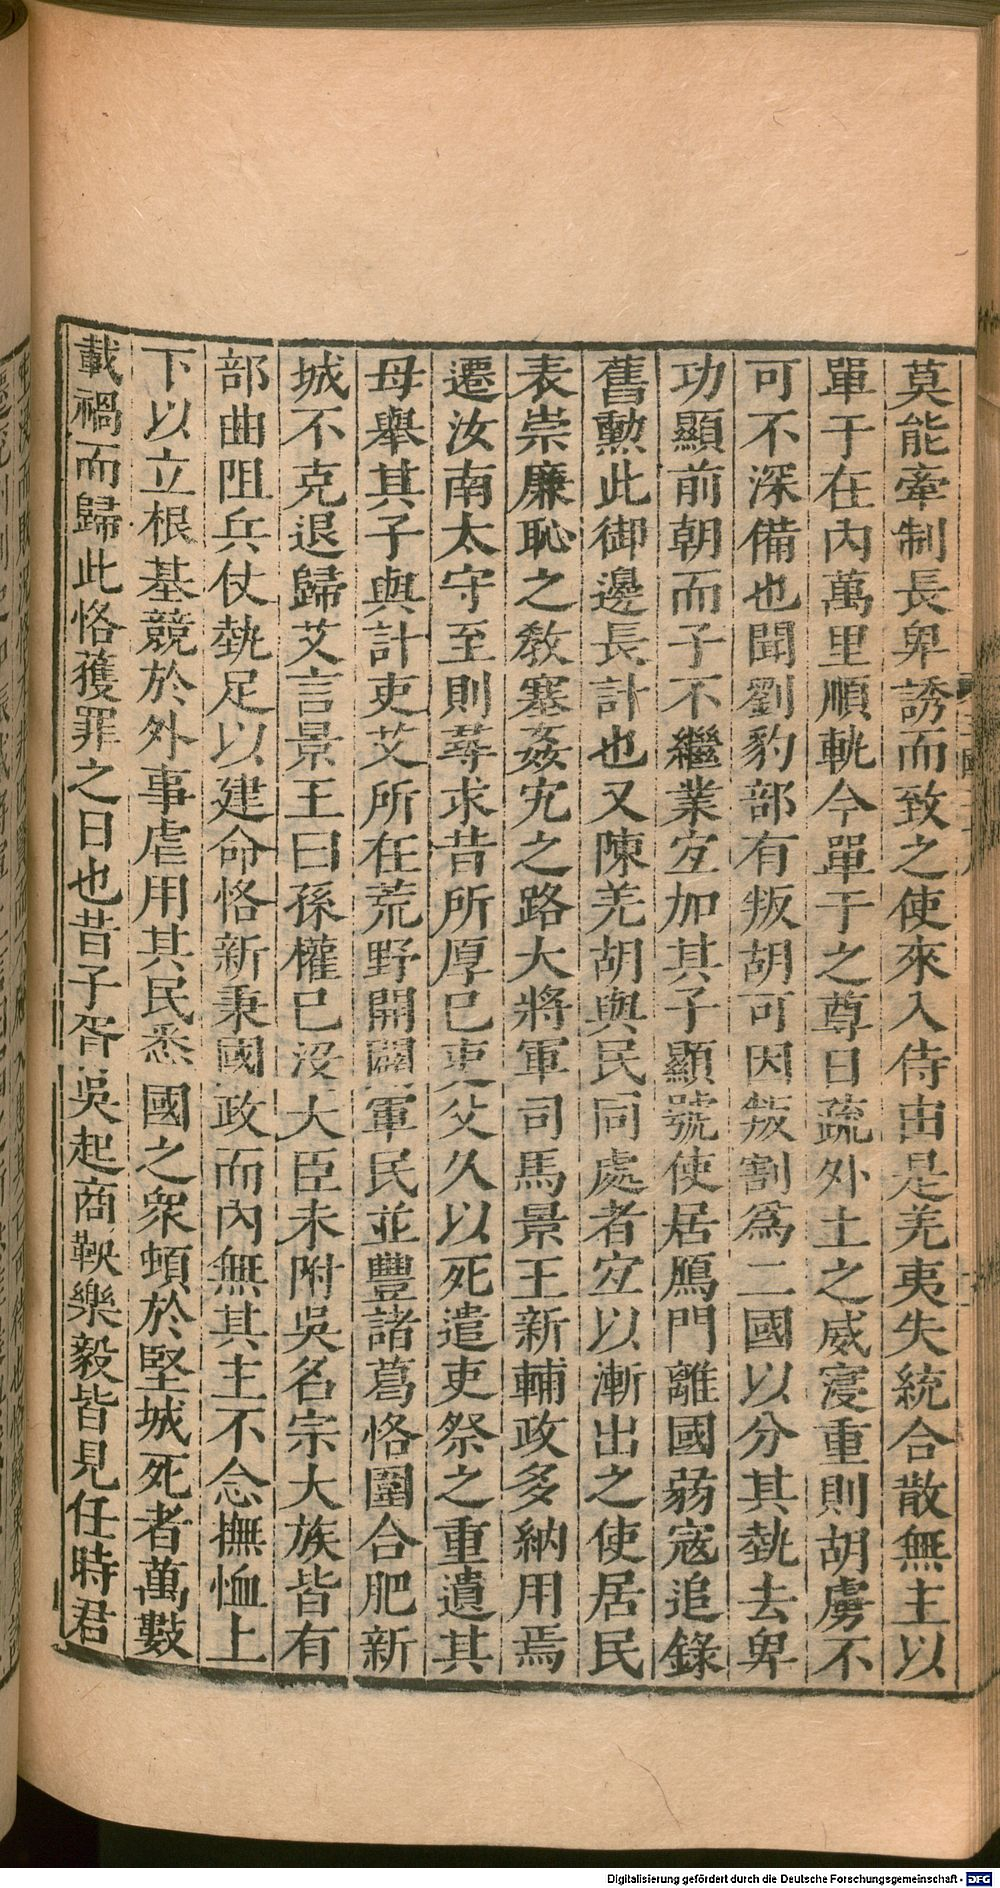 莫能牽制長卑誘而致之使來入侍由是羌夷失統合散無主以
單于在內萬里順軌今單于之尊日疏外土之威寖重則胡虜不
可不深備也聞劉豹部有叛胡可因叛割爲二國以分其埶去卑
功顯前朝而子不繼業宜加其子顯號使居鴈門離國弱寇追錄
舊勲此御邊長計也又陳羌胡與民同處者宜以漸出之使居民
表崇廉恥之敎塞姦宄之路大將軍司馬景王新輔政多納用焉
遷汝南太守至則尋求昔所厚巳吏父久以死遣吏祭之重遺其
母舉其子與計吏艾所在荒野開闢軍民並豐諸葛恪圍合肥新
城不克退歸艾言景王曰孫權巳沒大臣未附吳名宗大族皆有
部曲阻兵仗埶足以建命恪新秉國政而內無其主不念撫恤上
下以立根基競於外事虐用其民悉國之衆頓於堅城死者萬數
載禍而歸此恪獲罪之日也昔子胥吳起商鞅樂毅皆見任時君
Digitalisierung gefördert durch die Deutsche Forschungsgemeinschaft - DFG